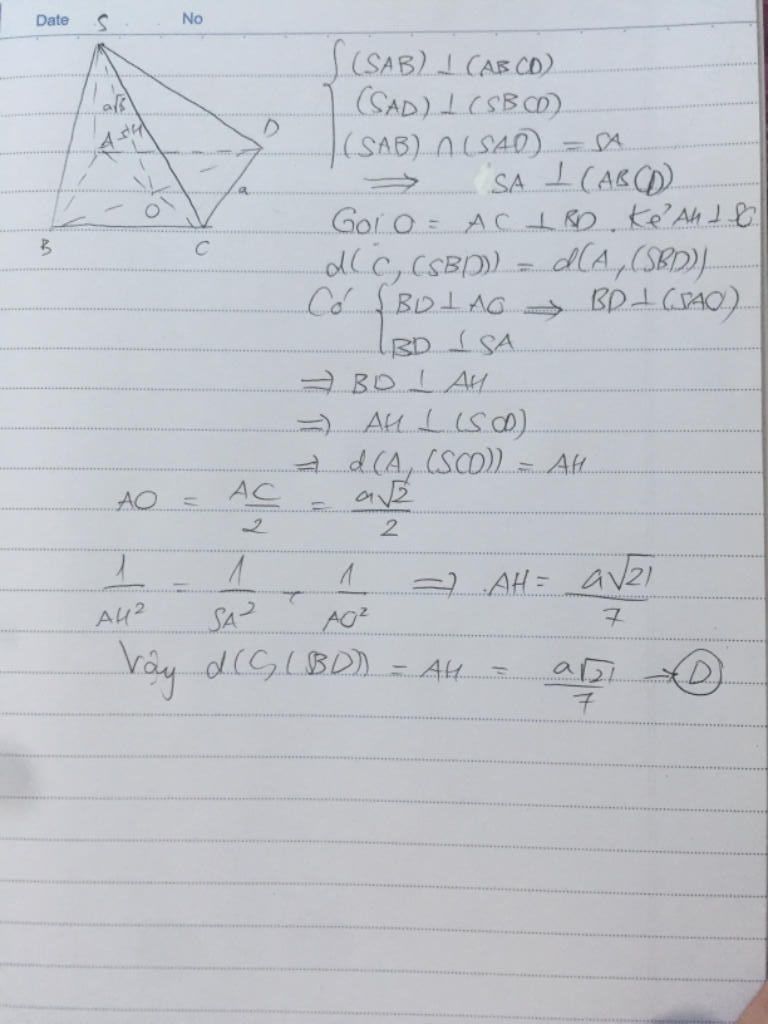 Date No
S
a√3
A H D
a
O
B C
{ (SAB) ⊥ (ABCD)
(SAD) ⊥ (SBCD)
(SAB) ∩ (SAD) = SA
⟹ SA ⊥ (ABCD)
Gọi O = AC ⊥ BD. Kẻ AH ⊥ SO
d(C, (SBD)) = d(A, (SBD))
Có { BD ⊥ AO ⟹ BD ⊥ (SAO)
BD ⊥ SA
⟹ BD ⊥ AH
⟹ AH ⊥ (SCD)
⟹ d(A, (SCD)) = AH
AO = AC/2 = a√2/2
1/AH² = 1/SA² - 1/AO² ⟹ AH = a√21/7
Vậy d(C, (BD)) = AH = a√21/7 → D